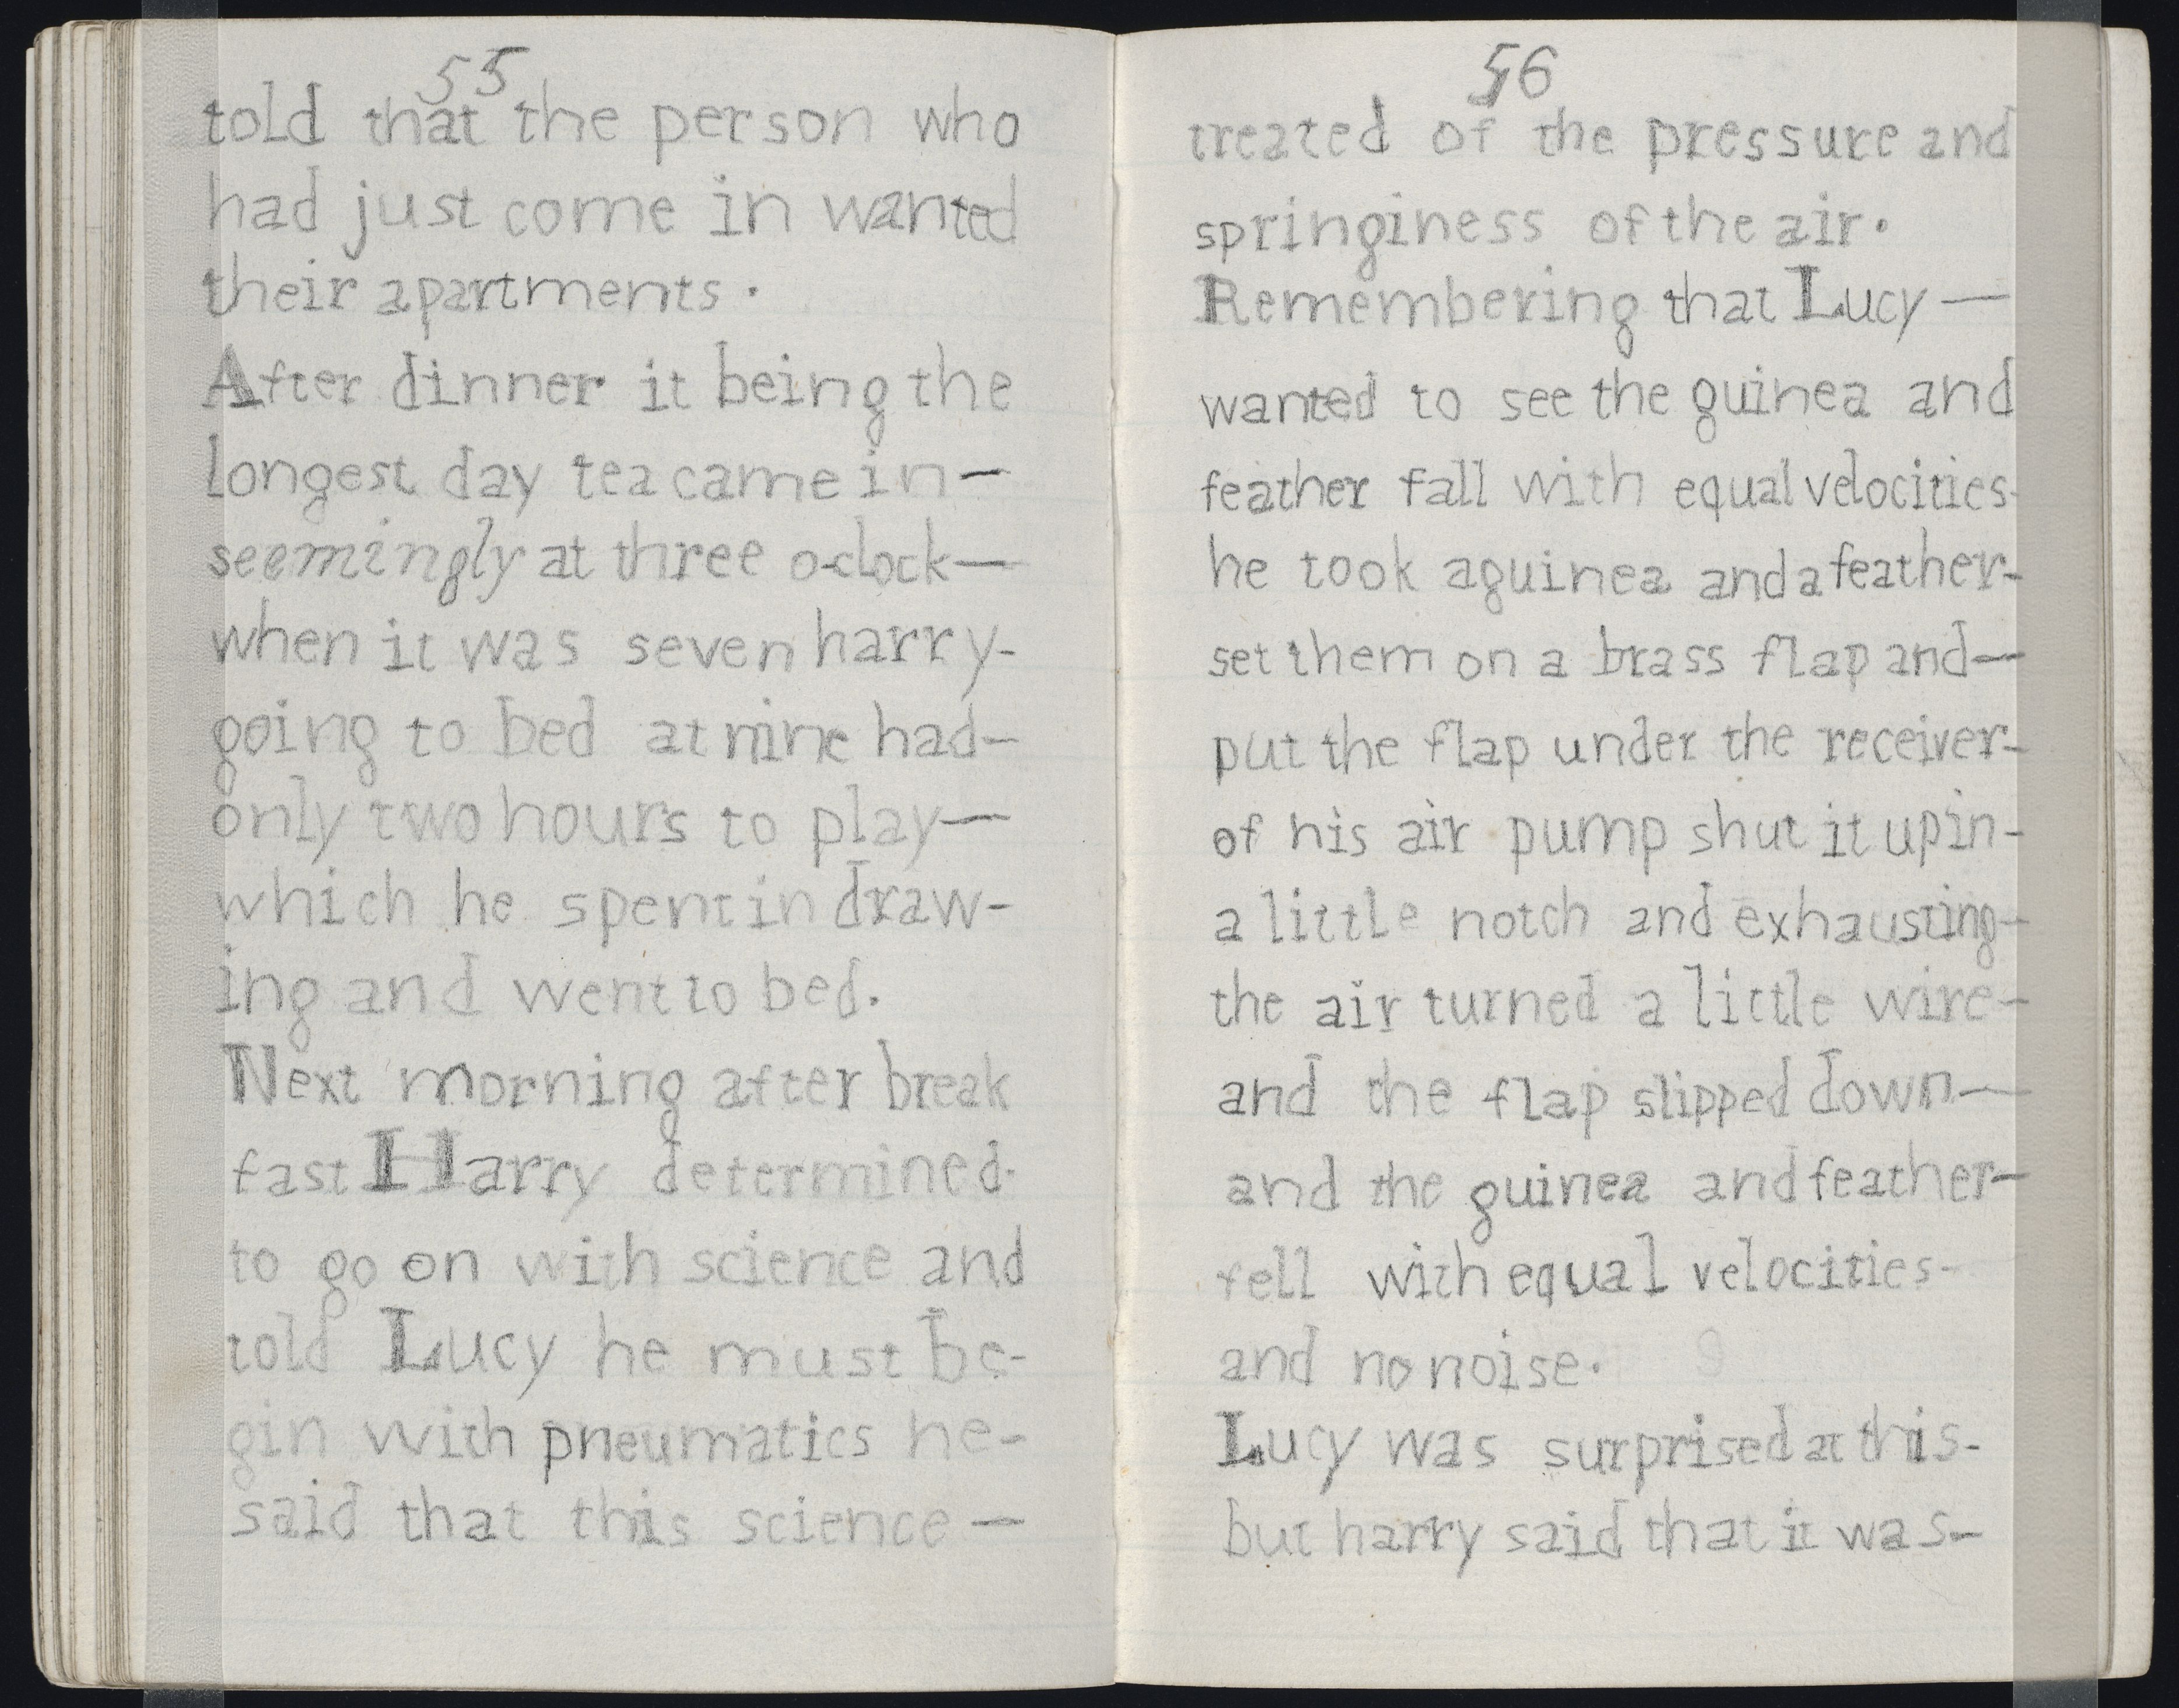 55
told that the person who
had just come in wanted
their apartments.
After dinner it being the
longest day tea came in —
seemingly at three o-clock —
when it was seven harry-
going to bed at nine had-
only two hours to play —
which he spent in draw-
ing and went to bed.
Next morning after break
fast Harry determined-
to go on with science and
told Lucy he must be-
gin with pneumatics he-
said that this science —
56
treated of the pressure and
springiness of the air.
Remembering that Lucy —
wanted to see the guinea and
feather fall with equal velocities-
he took a guinea and a feather-
set them on a brass flap and —
put the flap under the receiver-
of his air pump shut it up in-
a little notch and exhausting-
the air turned a little wire-
and the flap slipped down —
and the guinea and feather-
fell with equal velocities-
and no noise.
Lucy was surprised at this-
but harry said that it was-